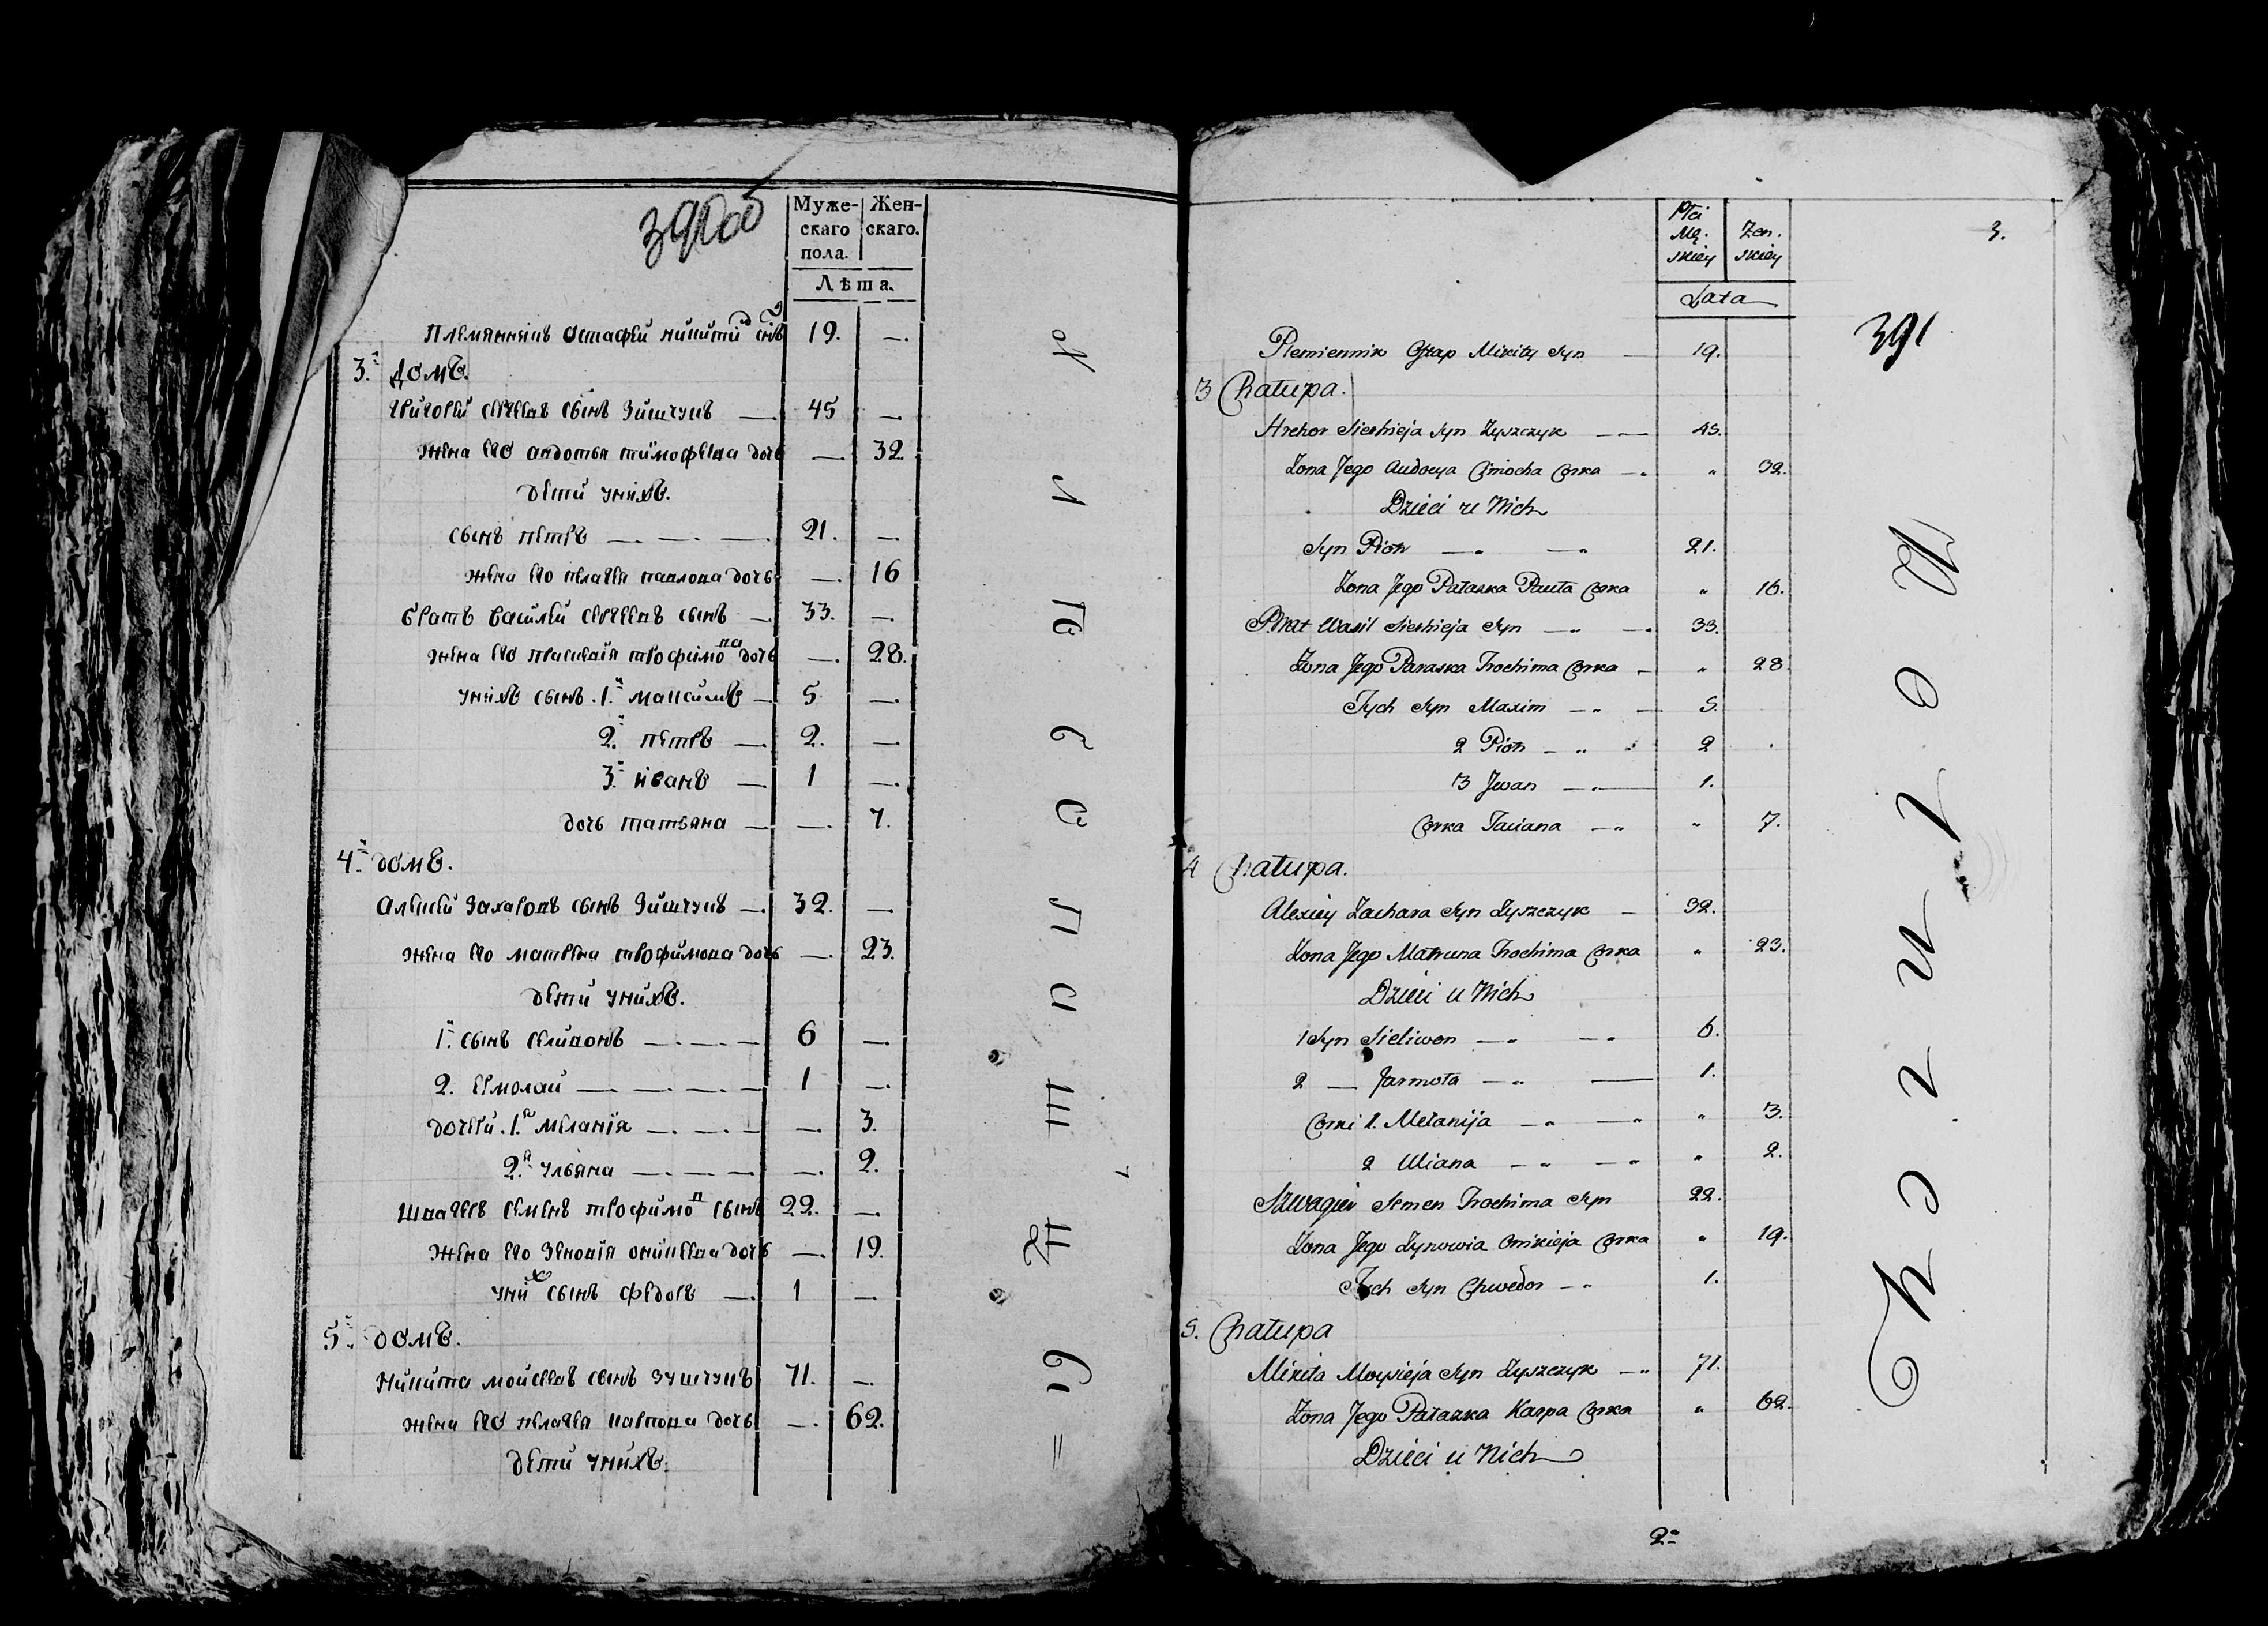 390об
Муже- Жен-
скаго скаго.
пола.
Лѣта.
Племянникъ Остафей никити снъ 19. —.
3.й домъ.
Григорей сергеевъ сынъ Зишчукъ — 45 —
жена его авдотья тимофеева дочь —. 32.
дети унихъ.
сынъ петръ —. —. — 21. —.
жена его пелагея павлова дочь —. 16
братъ василей сергеевъ сынъ — 33. —.
жена его прасковія трофимова дочь —. 28.
унихъ сынъ. 1.й максимъ — 5 —.
2.й петръ — 2. —
3.й иванъ — 1 —.
дочь татьяна — —. 7.
4.й домъ.
Алексей Захаровъ сынъ Зишчукъ — 32. —.
жена его матрена трофимова дочь —. 23.
дети унихъ.
1.й сынъ селивонъ —. —. — 6 —.
2. ермолай — —. —. — 1 —.
дочери. 1.я меланія —. —. — —. 3.
2.я ульяна —. —. — —. 2.
швагеръ семенъ трофимовъ сынъ 22. —.
жена его Зеновія оникеева дочь —. 19.
унихъ сынъ федоръ —. 1 —.
5.й домъ.
Никита мойсеевъ сынъ зушчукъ 71. —.
жена его пелагея карпова дочь —. 62.
дети унихъ.
Płci
Mę- Żen-
skiey skiey
Lata
3.
391
Plemiennik Ostap Mikity Syn — 19.
3 Chałupa.
Hrehor Sierhieja Syn Zyszczyk — 45.
Żona Jego Audocya Cimocha Corka — " 32.
Dzieci u Nich
Syn Piotr —" —" 21.
Żona Jego Pałaska Pauła Corka " 16.
Brat Wasil Sierhieja Syn —" — 33.
Żona Jego Paraska Trochima Corka — " 28
Tych Syn Maxim —" — 5.
2 Piotr —" 2
3 Jwan —" 1.
Corka Taciana —" " 7.
4 Chałupa.
Alexiey Zachara Syn Zyszczyk — 32.
Żona Jego Matruna Trochima Corka " 23.
Dzieci u Nich
1 Syn Sieliwon —" —" 6.
2 — Jarmoła —" — 1.
Corki 1. Mełanija —" —" " 3.
2 Uliana —" —" " 2.
Szwagier Semen Trochima Syn 22.
Żona Jego Zynowia Onikieja Corka " 19.
Tych Syn Chwedor —" 1.
5. Chałupa
Mikita Moysieja Syn Zyszczyk —" 71.
Żona Jego Pałaska Karpa Corka " 62.
Dzieci u Nich
2.